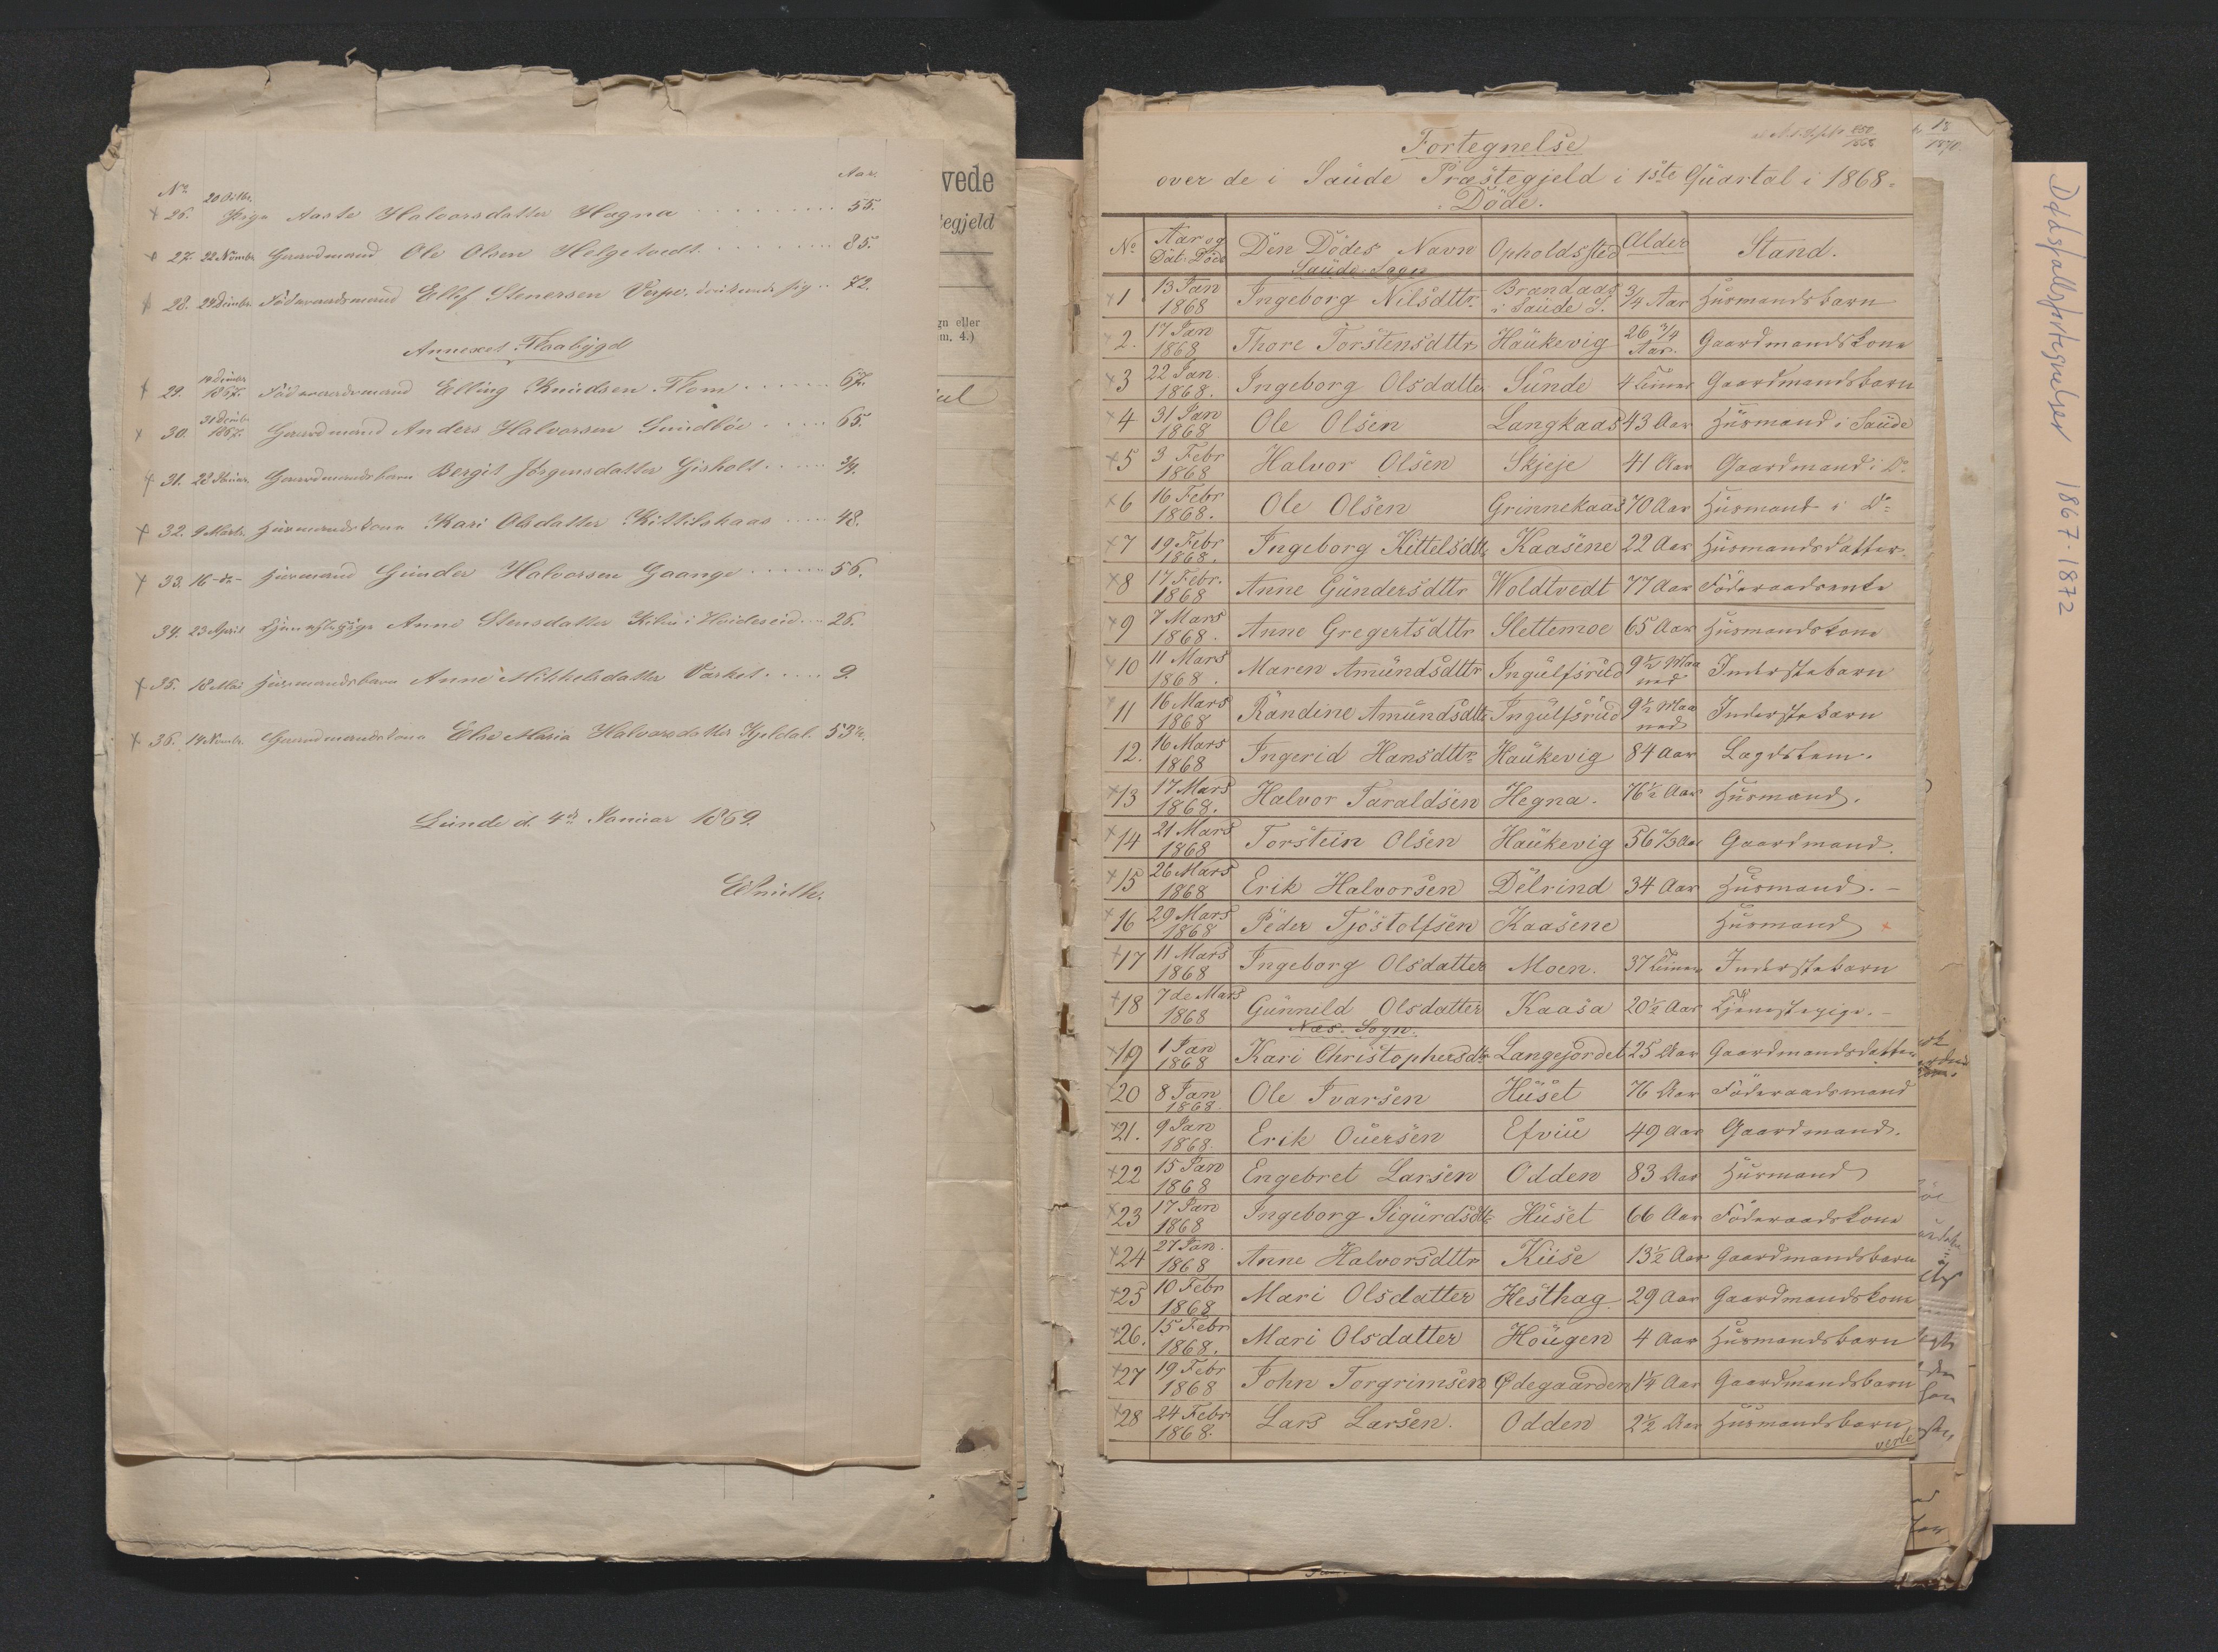 Aar.
No
26. 20 Octbr. Pige Aaste Halvorsdatter Hagna 55.
27. 22 Novmbr. Gaardmand Ole Olsen Helgetvedt 85.
28. 24 Decmbr. Föderaadsmand Ellef Stenersen Verpe. 72.
Annexet Flaabygd
29. 14 Decmbr 1867. Föderaadsmand Elling Knudsen Flom 67.
30. 31 Decmbr 1867. Gaardmand Anders Halvorsen Gundböe 65.
31. 22 Gaardmandsbarn Bergit Jörgensdatter Gisholt 3/4.
32. 9 Marts Huusmandskone Kari Olsdatter Kittilskaas 48.
33. 16 -do- Huusmand Gunder Halvorsen Gaange 56.
34. 23 April Tjenestepige Anne Stensdatter i Hvideseid 26.
35. 18 Mai Huusmandsbarn Anne Mikkelsdatter Vasket 9.
36. 14 Novmbr. Gaardmandskone Else Maria Halvorsdatter Kjeldal. 53½.
Lunde d. 4de Januar 1869.
vede
egjeld
gn eller
m. 4.)
Fortegnelse
over de i Saüde Præstegjeld i 1ste Quartal i 1868.
Döde.
No Aar og Dat. Döde Den Dödes Navn Opholdssted Alder Stand.
Saüde Sogn
1 13 Jan 1868 Ingeborg Nilsdttr. Brandaas i Saüde S. 3/4 Aar Huusmandsbarn
2. 17 Jan 1868 Thore Torstensdttr Haükevig 26 3/4 Aar. Gaardmandskone
3 22 Jan. 1868. Ingeborg Olsdatter Sünde 4 Timer Gaardmandsbarn
4 31 Jan 1868 Ole Olsen Langkaas 43 Aar Huusmand i Saüde
5 3 Febr 1868 Halvor Olsen Skjeje 41 Aar Gaardmand i Do
6 16 Febr 1868. Ole Olsen Grinnekaas 70 Aar Huusmand i Do
7 19 Febr 1868. Ingeborg Kittelsdtr Kaasene 22 Aar Huusmandsdatter
8 17 Febr. 1868 Anne Gündersdttr Woldtvedt 77 Aar Föderaadsenke
9 7 Mars 1868. Anne Gregertsdttr Slettemoe 65 Aar Huusmandskone
10 11 Mars 1868. Maren Amündsdttr Ingülfsrüd 9½ Maaned Inderstebarn
11 16 Mars 1868 Randine Amündsdttr Ingülfsrüd 9½ Maaned Inderstebarn
12. 16 Mars 1868 Ingerid Hansdttr Haükevig 84 Aar Lægdslem.
13 17 Mars 1868. Halvor Taraldsen Hegna. 76½ Aar Huusmand.
14 21 Mars 1868 Torstein Olsen Haükevig 56 2/3 Aar Gaardmand.
15 26 Mars 1868 Erik Halvorsen Delrind 34 Aar Huusmand. -
16 29 Mars 1868 Peder Tjöstolfsen Kaasene Huusmand
17 11 Mars 1868 Ingeborg Olsdatter Moen. 37 Timer Inderstebarn
18 7de Mars 1868 Günnild Olsdatter Kaasa 20½ Aar Tjenestepige. -
Næs. Sogn.
19 1 Jan 1868 Kari Christophersdtr Langejordet 25 Aar Gaardmandsdatter
20 8 Jan 1868. Ole Ivarsen Hüset 76 Aar Föderaadsmand
21. 9 Jan 1868. Erik Oüersen Efviü 49 Aar Gaardmand.
22 15 Jan 1868 Engebret Larsen Odden 83 Aar Huusmand
23 17 Jan 1868 Ingeborg Sigürdsdtr Hüset 66 Aar Föderaadskone
24 27 Jan. 1868 Anne Halvorsdttr Kiise 13½ Aar Gaardmandsbarn
25 10 Febr 1868 Mari Olsdatter Hesthag. 29 Aar Gaardmandskone
26. 15 Febr 1868. Mari Olsdatter Höügen 4 Aar Huusmandsbarn
27 19 Febr 1868 John Torgrimsen Ødegaarden 1¼ Aar Gaardmandsbarn
28 24 Febr 1868. Lars Larsen. Odden 2½ Aar Huusmandsbarn
verte
Dødsfallsfortegnelser 1867-1872